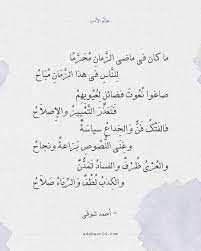 عالم الأدب
ما كان في ماضي الزمان محرما
للناس في هذا الزمان مباح
صاغوا نعوت فضائل لعيوبهم
فتعذر التمييز والإصلاح
فالفتك فن والخداع سياسة
وغنى اللصوص براعة ونجاح
والعري ظرف والفساد تمدن
والكذب لطف والرياء صلاح
- أحمد شوقي
adabworld.com